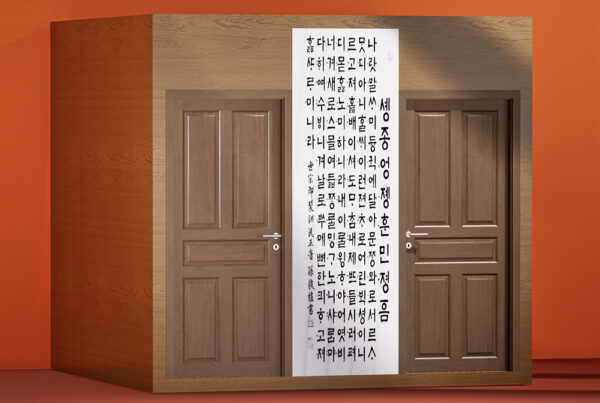 솅종엉졩훈민졍ᅙᅳᆷ
나랏말ᄊᆞ미듕귁에달아문ᄍᆞᆼ와로서르ᄉᆞ
ᄆᆞᆺ디아니ᄒᆞᆯᄊᆡ이런젼ᄎᆞ로어린ᄇᆡᆨ셩이니
르고져ᄒᆞᇙ배이셔도ᄆᆞᄎᆞᆷ내제ᄠᅳ들시러펴
디몯ᄒᆞᇙ노미하니라내이ᄅᆞᆯ윙ᄒᆞ야어엿비
너겨새로스믈여듧ᄍᆞᆼᄅᆞᆯᄆᆡᇰᄀᆞ노니사ᄅᆞᆷ마
다ᄒᆡᅇᅧ수ᄫᅵ니겨날로ᄡᅮ메뼌한킈ᄒᆞ고져
ᄒᆞᇙᄯᆞᄅᆞ미니라
世宗御製訓民正音